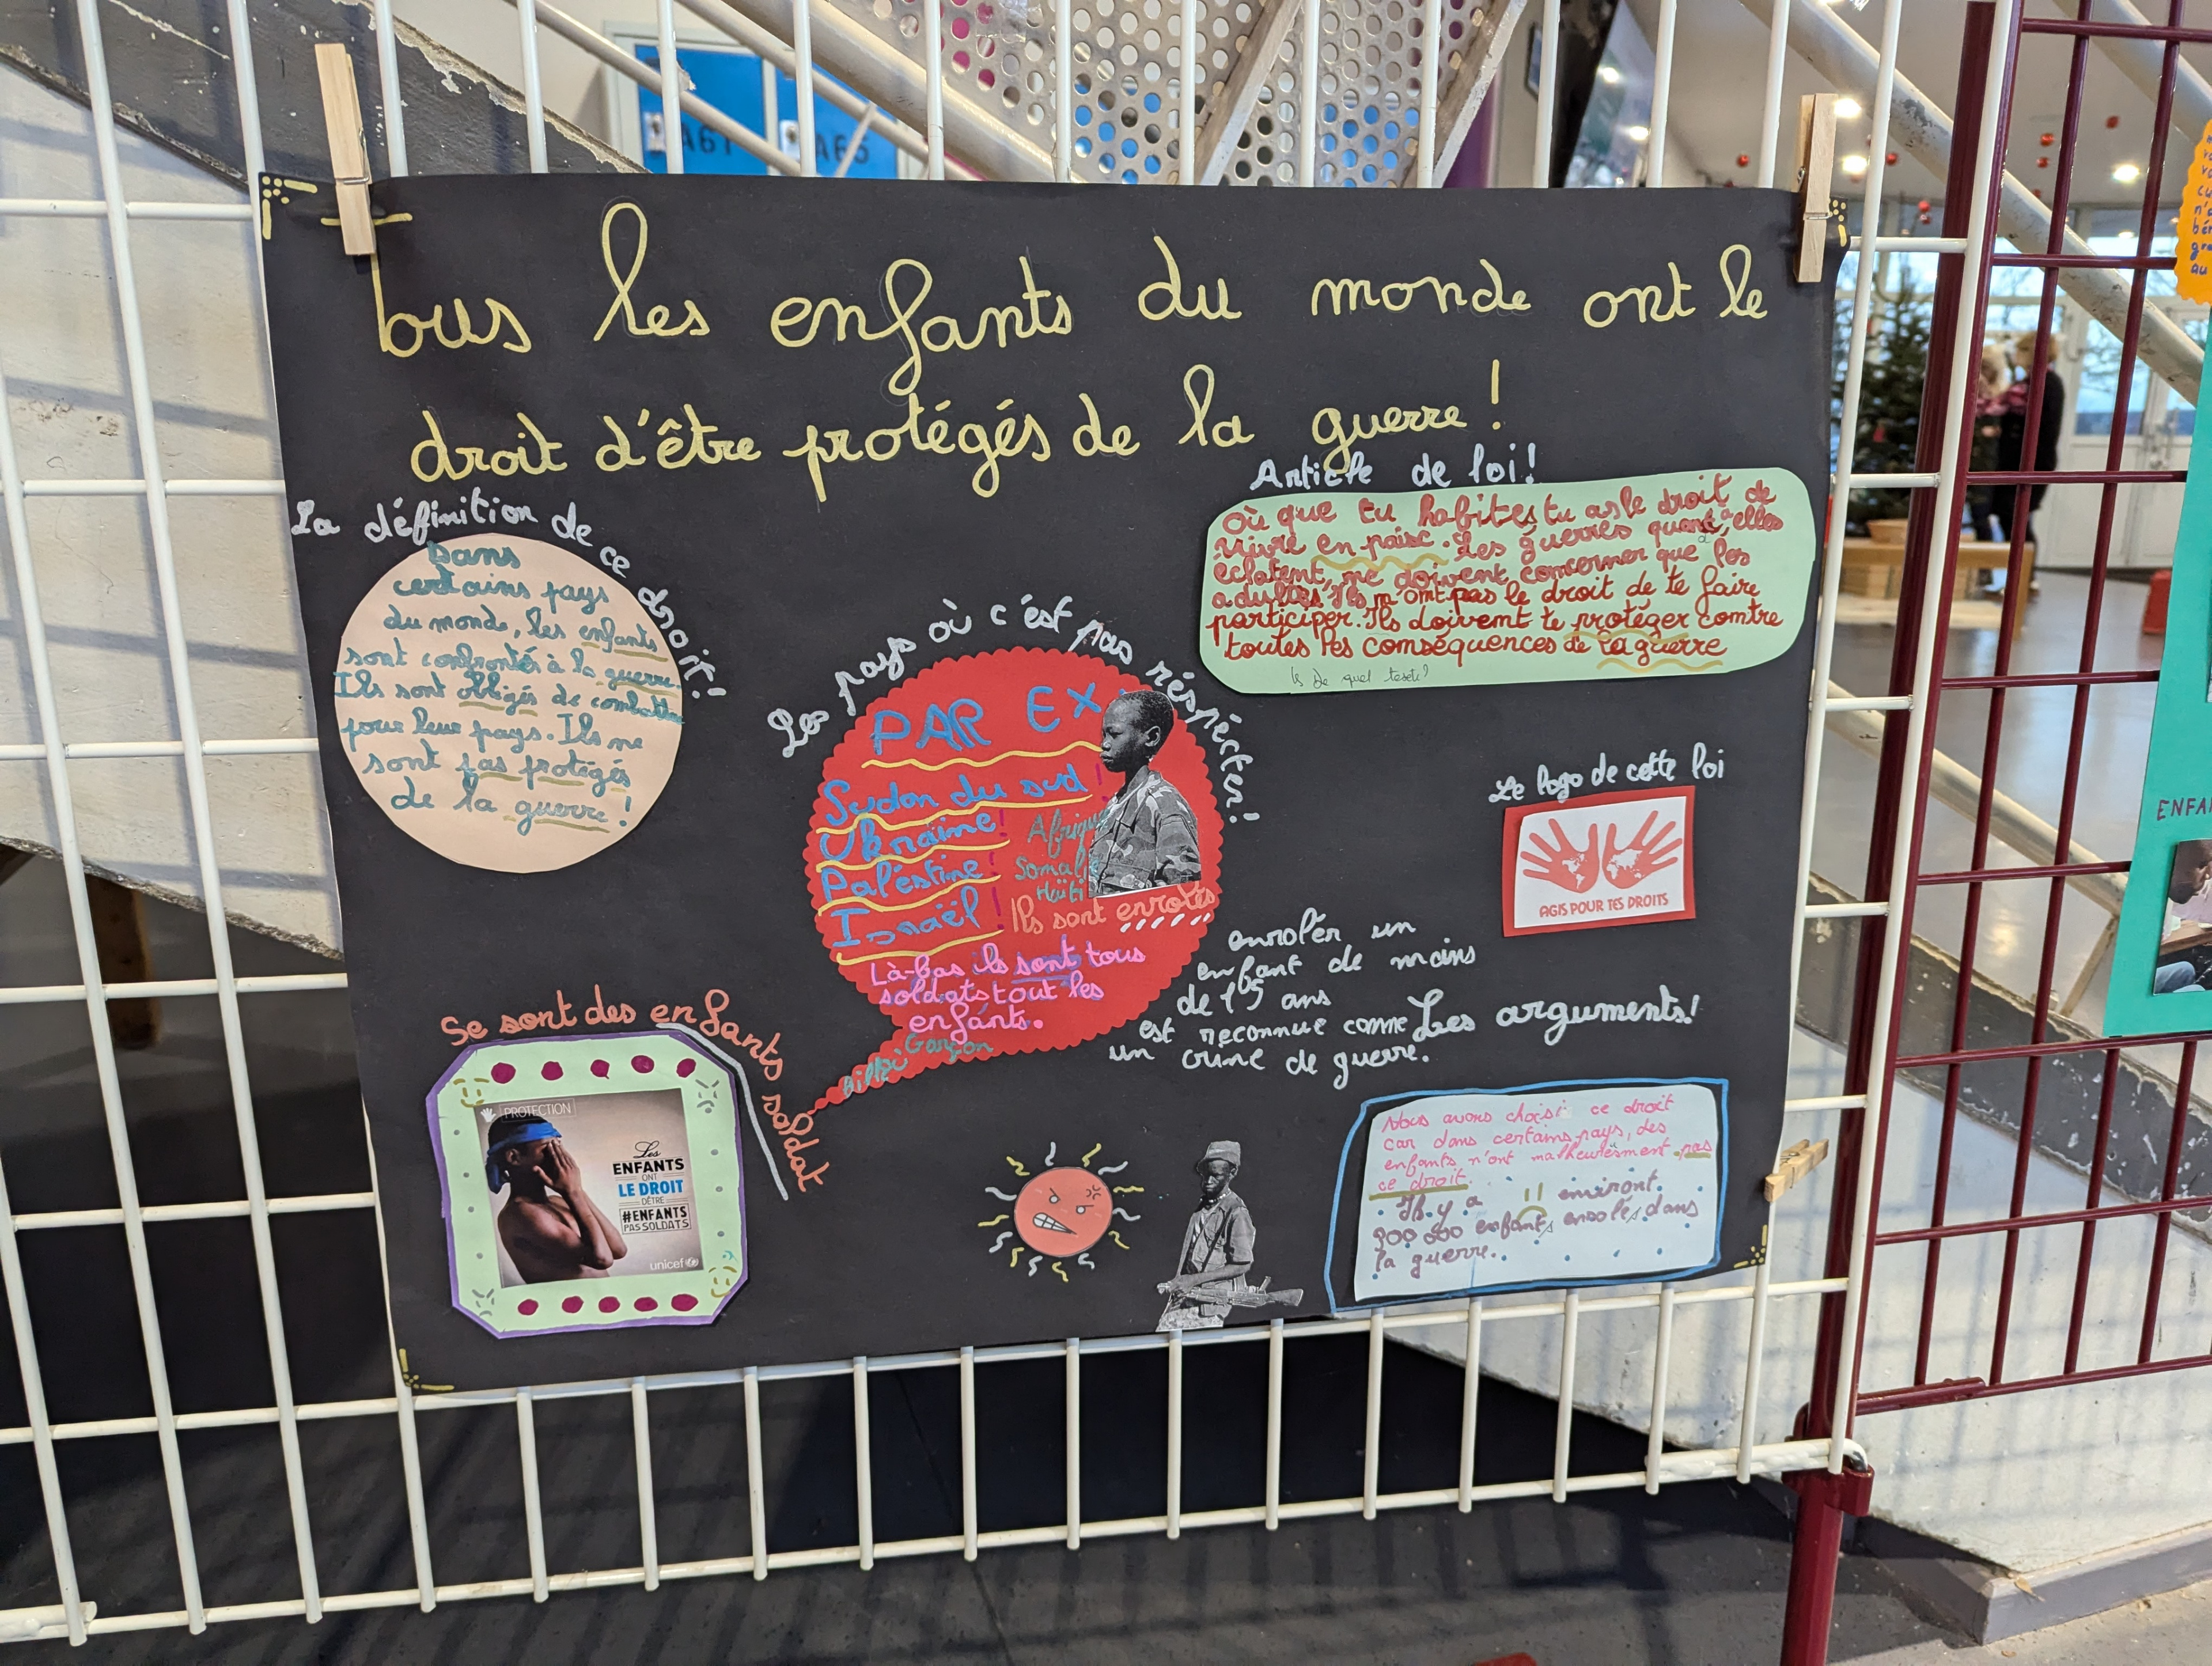 Tous les enfants du monde ont le
droit d'être protégés de la guerre !
La définition de ce droit !
Dans
certains pays
du monde, les enfants
sont confrontés à la guerre.
Ils sont obligés de combattre
pour leur pays. Ils ne
sont pas protégés
de la guerre !
Article de loi !
Où que tu habites, tu as le droit de
vivre en paise. Les guerres quand elles
eclatent, ne doivent concerner que les
adultes Ils n'ont pas le droit de te faire
participer. Ils doivent te protéger contre
toutes les conséquences de la guerre
de quel
Les pays où c'ést pas réspécter !
PAR EX
Sudan du sud !
Ukraine !
Paléstine !
Israël !
Afrique
Somali
Haïti
Ils sont enrolés
Là-bas ils sont tous
soldats tout les
enfants.
Garçon
enrolér un
enfant de moins
de 15 ans
est reconnue comme
un crime de guerre.
Le logo de cette loi
AGIS POUR TES DROITS
Se sont des enfants soldat
PROTECTION
Les
ENFANTS
ONT
LE DROIT
D'ÊTRE
#ENFANTS
PAS SOLDATS
unicef
Les arguments !
Nous avons choisi ce droit
car dans certains pays, des
enfants n'ont malheureusement pas
ce droit.
Il y a environt
300 000 enfants enrolés dans
la guerre.
A61
A65
ENFA